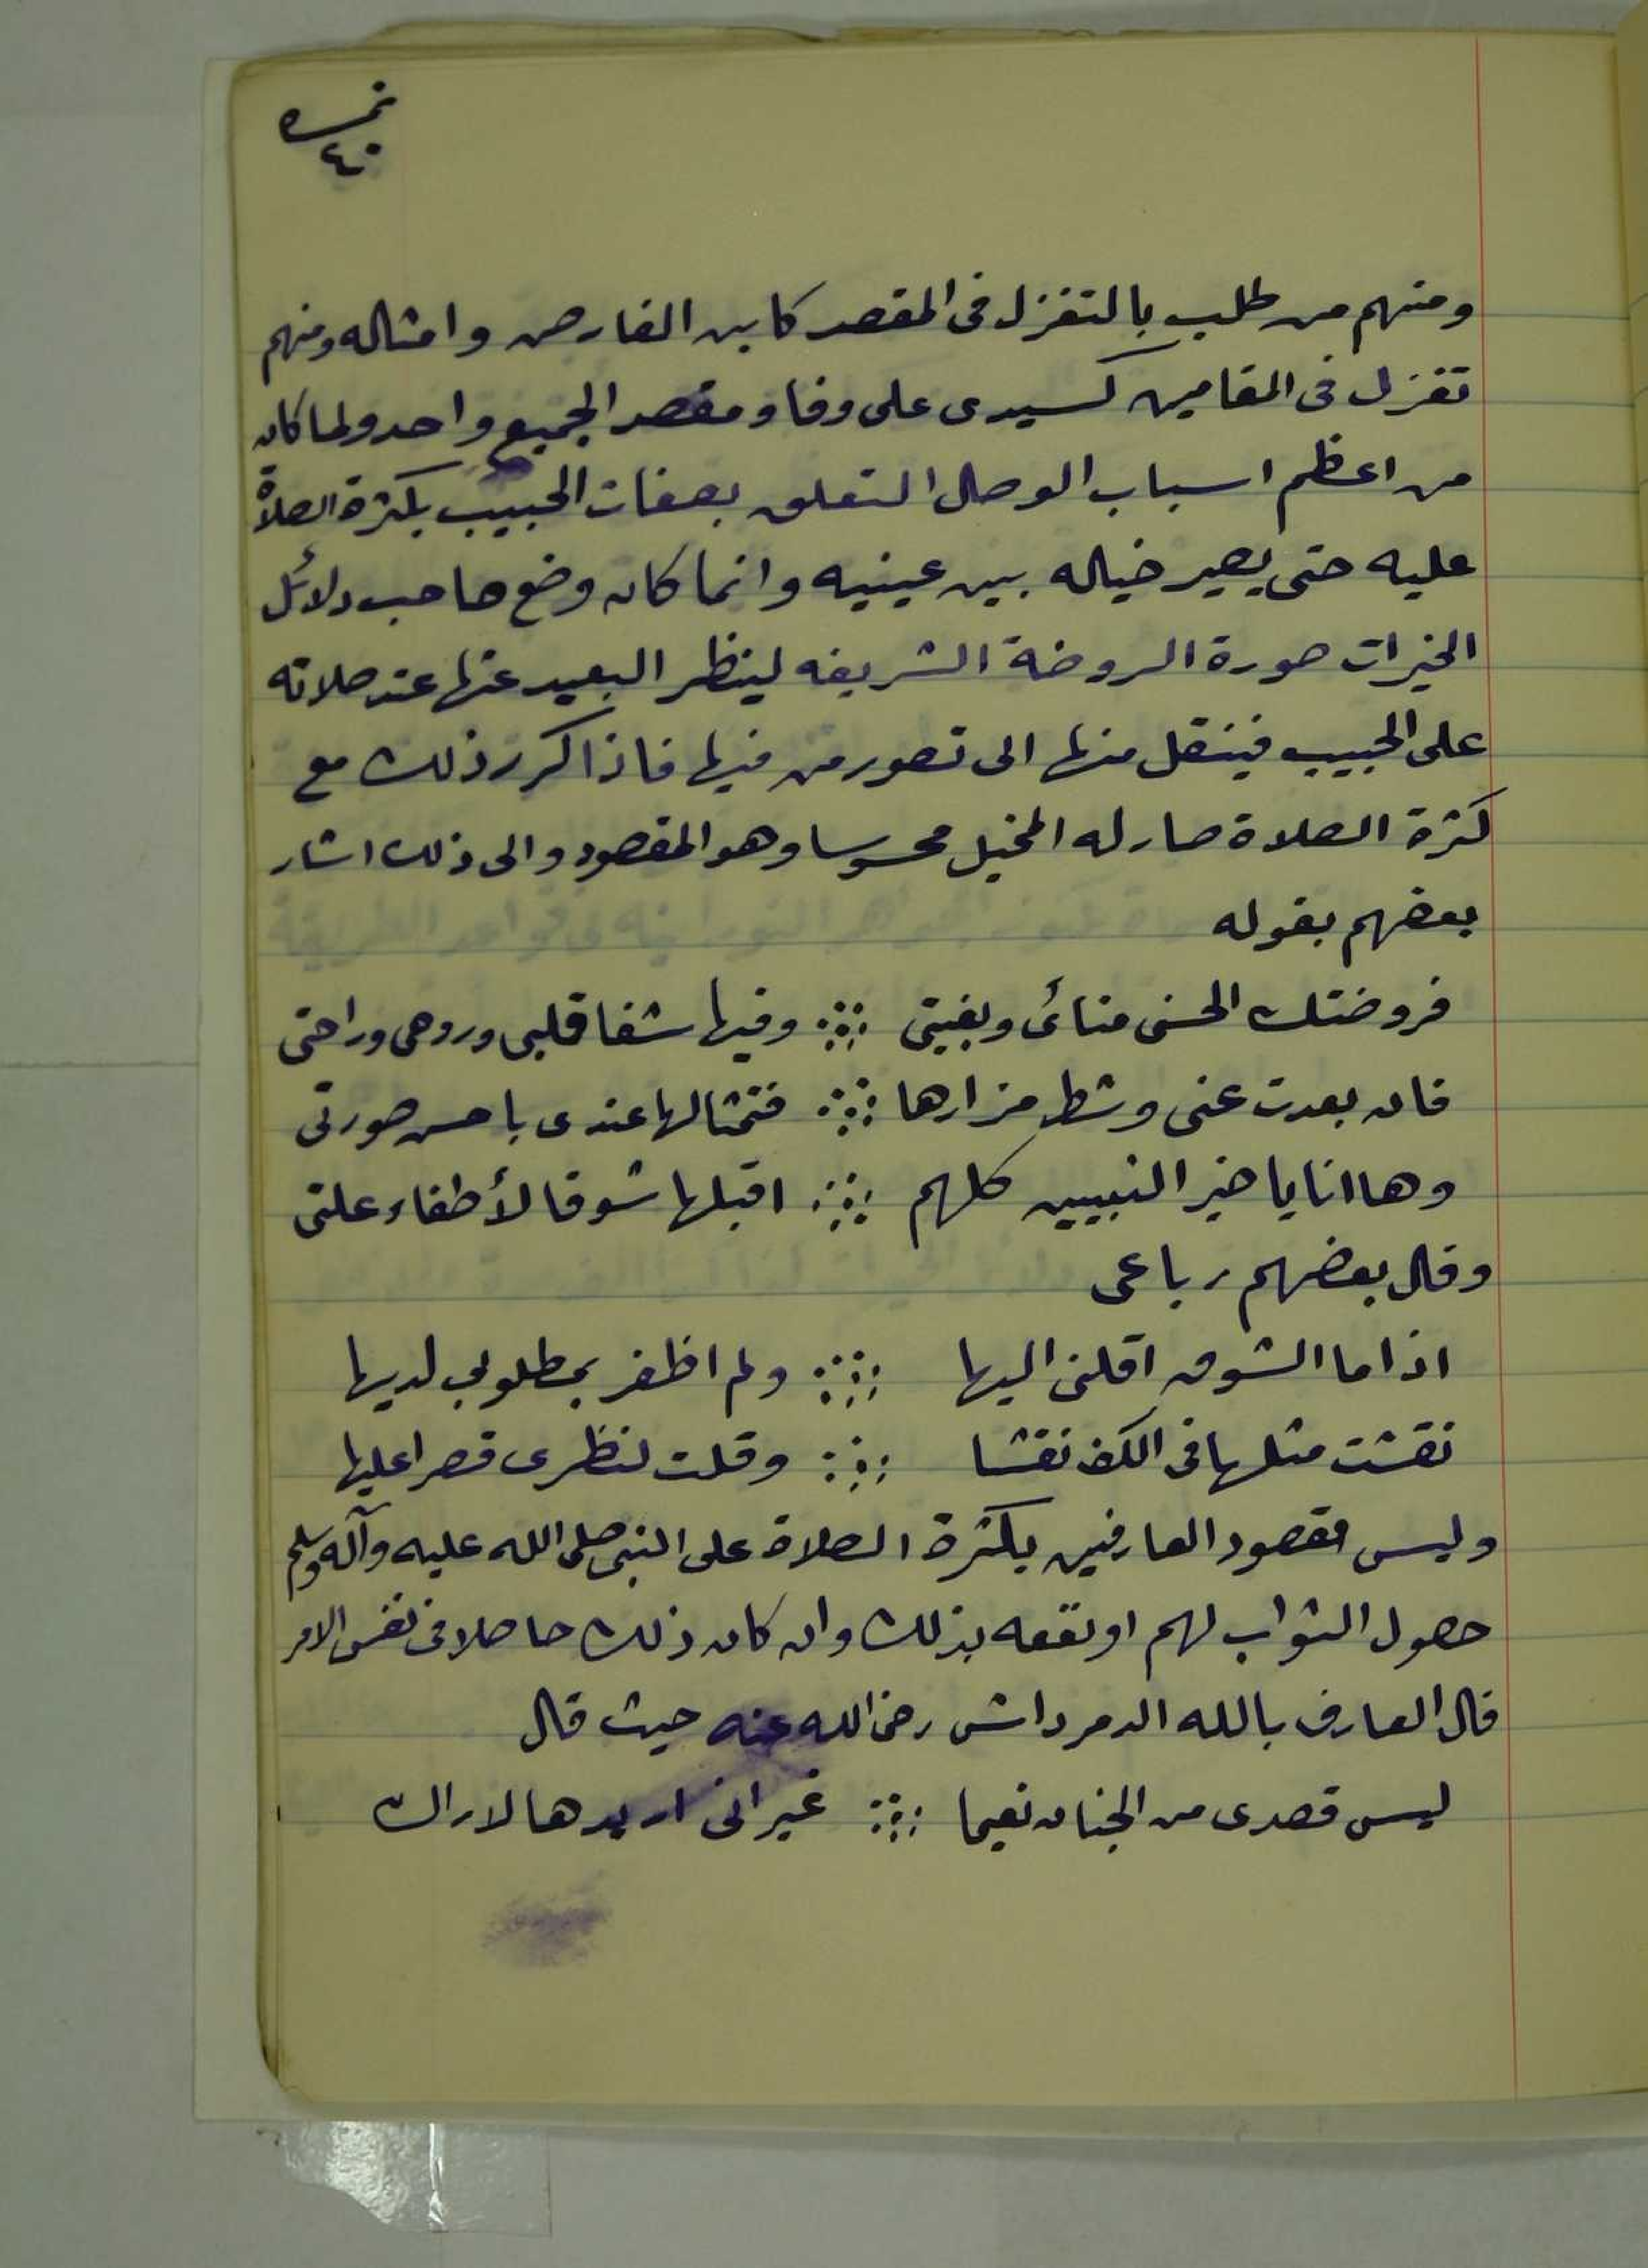 نمره
٤٠
ومنهم من طلب بالتغزل فى المقصد كابن الفارض وامثاله ومنهم
تغزل فى المقامين كسيدى على وفا ومقصد الجميع واحد ولما كان
من اعظم اسباب الوصال التعلق بصفات الحبيب بكثرة الصلاة
عليه حتى يصير خياله بين عينيه وانما كان وضع صاحب دلائل
الخيرات صورة الروضة الشريفه لينظر البعيد عنها عند صلاته
على الحبيب فينتقل منها الى تصور من فيها فاذا كرر ذلك مع
كثرة الصلاة صار له المخيل محسوسا وهو المقصود والى ذلك اشار
بعضهم بقوله
فروضتك الحسنى منائى وبغيتى ؞ وفيها شفا قلبى وروحى وراحتى
فان بعدت عنى وشط مزارها ؞ فتمثالها عندى باحسن صورتى
وها انا يا خير النبيين كلهم ؞ اقبلها شوقا لأطفاء علتى
وقال بعضهم رباعى
اذا ما الشوق اقلنى اليها ؞ ولم اظفر بمطلوبى لديها
نقشت مثلها فى الكف نقشا ؞ وقلت لنظرى قصرا عليها
وليس مقصود العارفين بكثرة الصلاة على النبى صلى الله عليه وآله وسلم
حصول الثواب لهم او نفعه بذلك وان كان ذلك حاصلا فى نفس الامر
قال العارف بالله الدمرداش رضى الله عنه حيث قال
ليس قصدى من الجنان نعيما ؞ غير انى اريدها لاراك